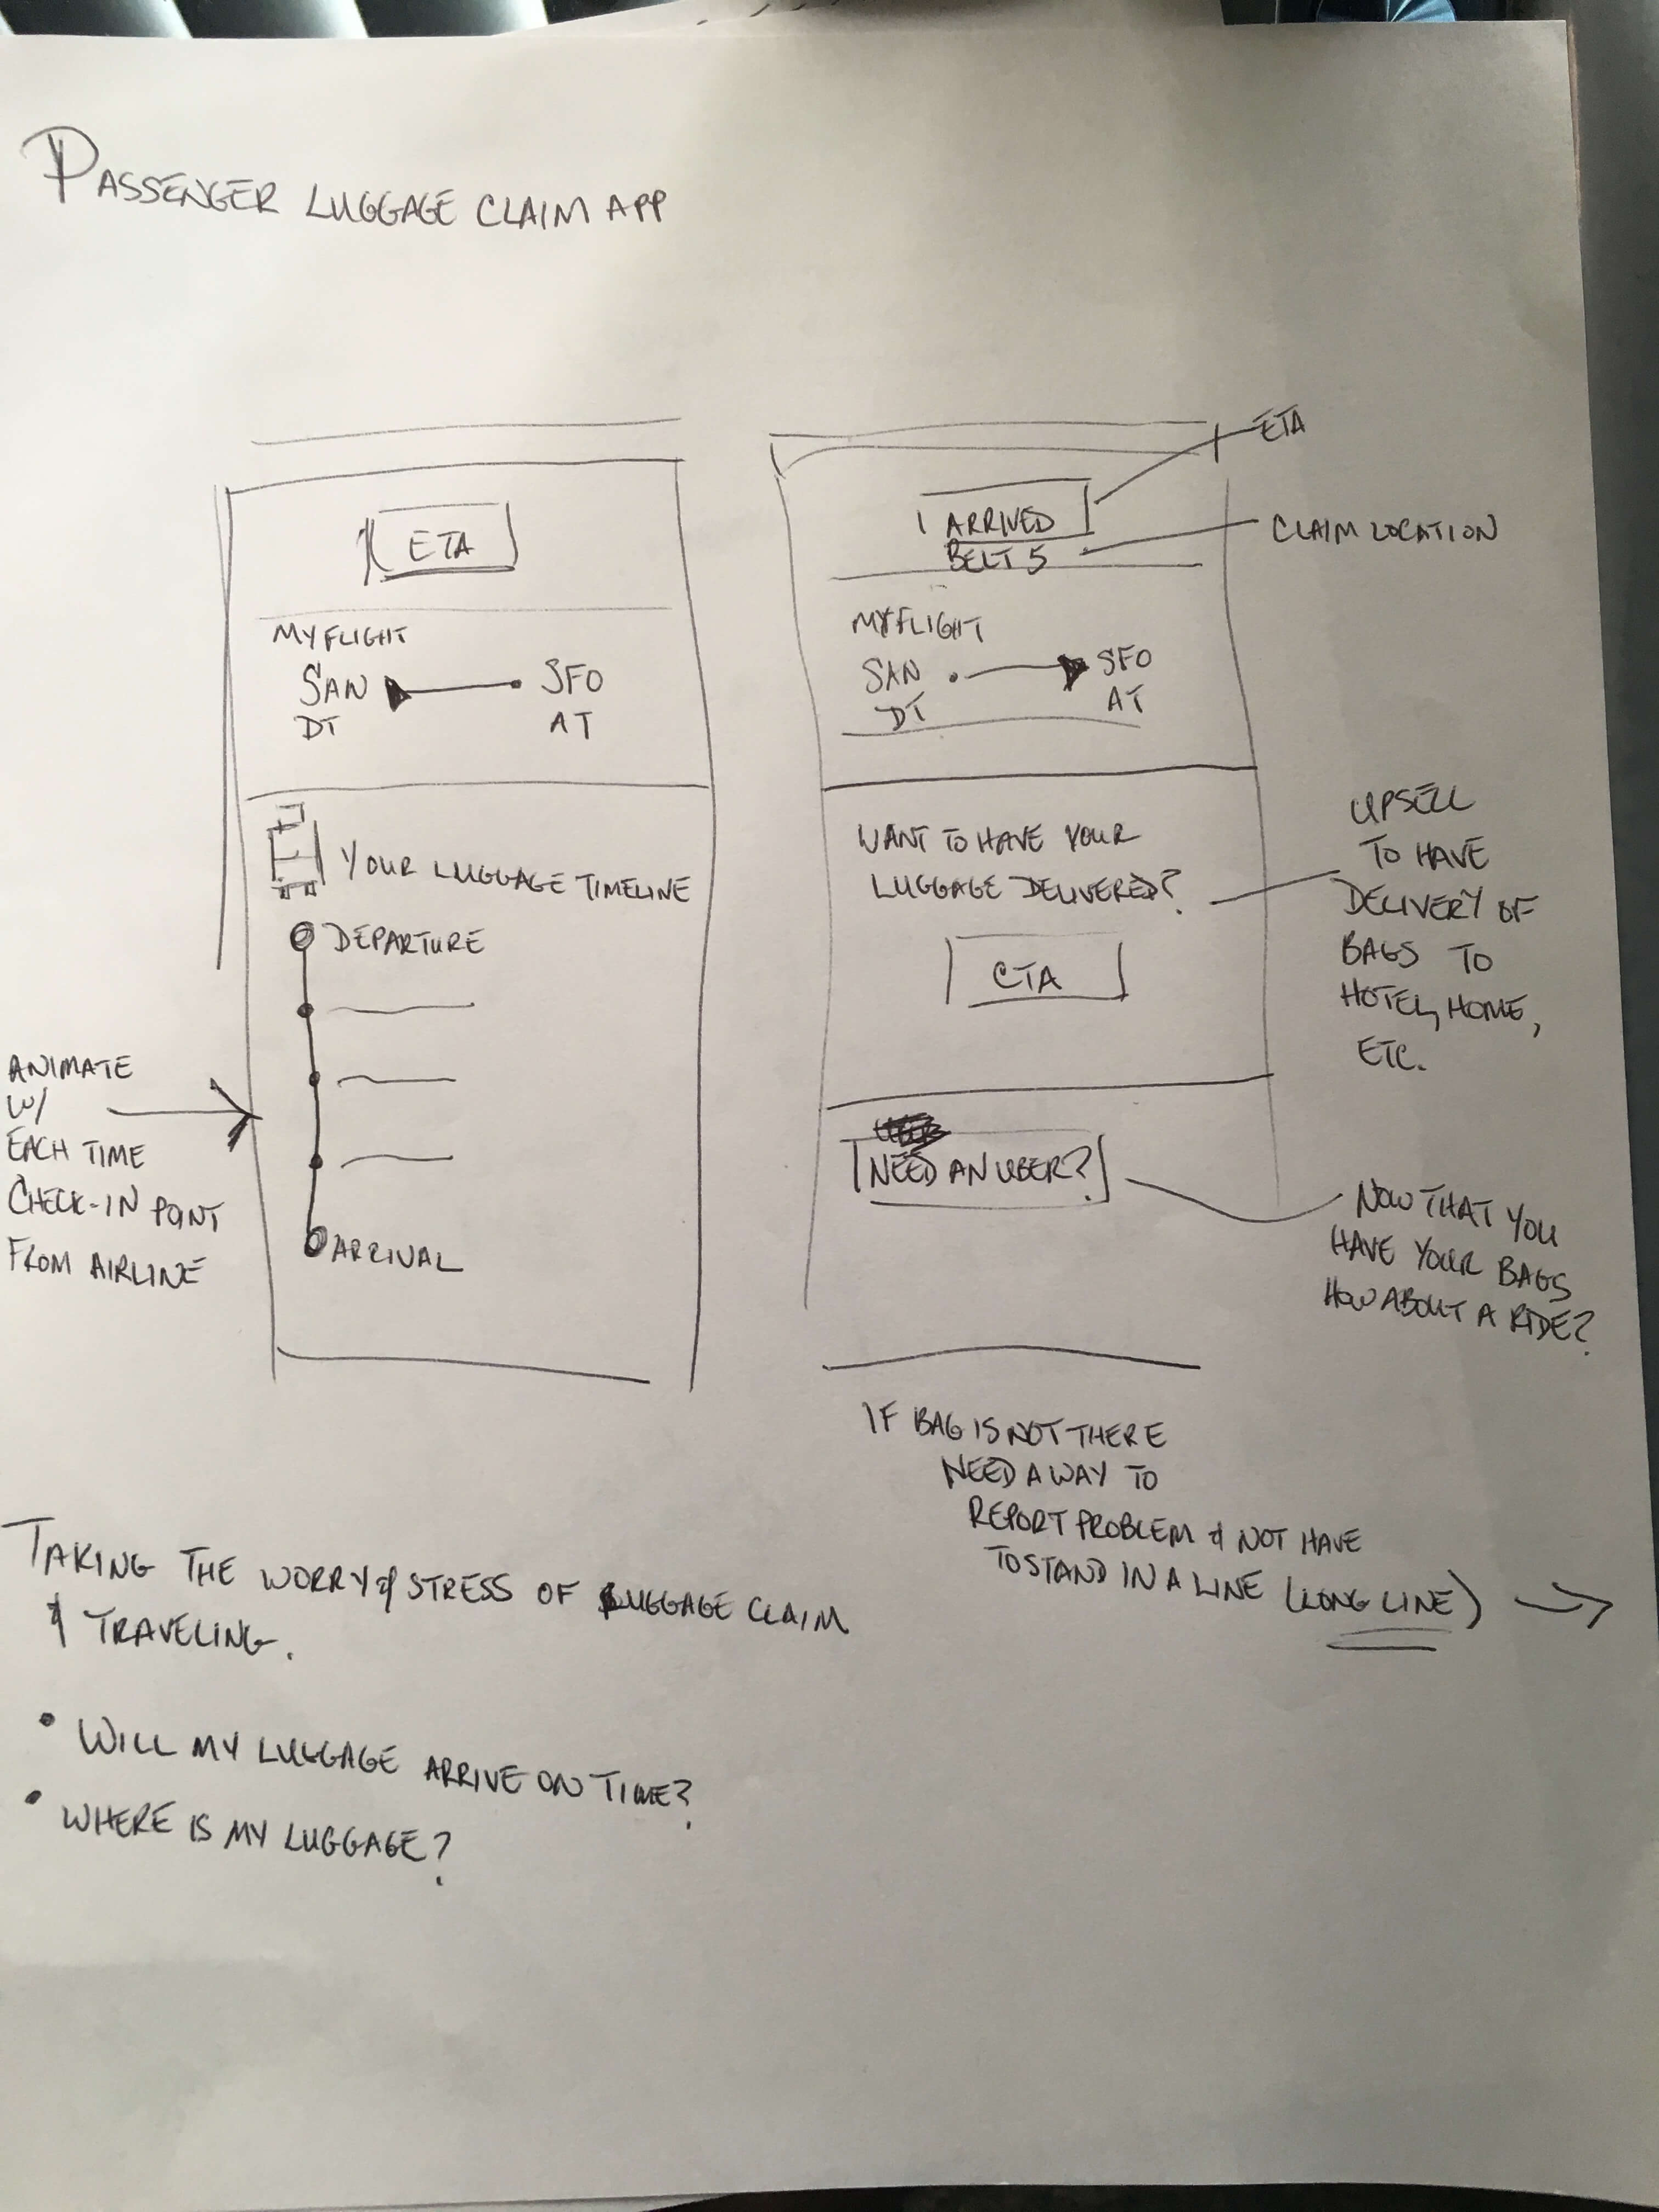 PASSENGER LUGGAGE CLAIM APP
ETA
MY FLIGHT
SAN SFO
DT AT
YOUR LUGGAGE TIMELINE
DEPARTURE
ARRIVAL
ANIMATE
W/
EACH TIME
CHECK-IN POINT
FROM AIRLINE
ETA
ARRIVED
BELT 5
CLAIM LOCATION
MY FLIGHT
SAN SFO
DT AT
WANT TO HAVE YOUR
LUGGAGE DELIVERED?
CTA
UPSELL
TO HAVE
DELIVERY OF
BAGS TO
HOTEL, HOME,
ETC.
NEED AN UBER?
NOW THAT YOU
HAVE YOUR BAGS
HOW ABOUT A RIDE?
IF BAG IS NOT THERE
NEED A WAY TO
REPORT PROBLEM & NOT HAVE
TO STAND IN A LINE (LONG LINE)
TAKING THE WORRY & STRESS OF LUGGAGE CLAIM
& TRAVELING.
• WILL MY LUGGAGE ARRIVE ON TIME?
• WHERE IS MY LUGGAGE?